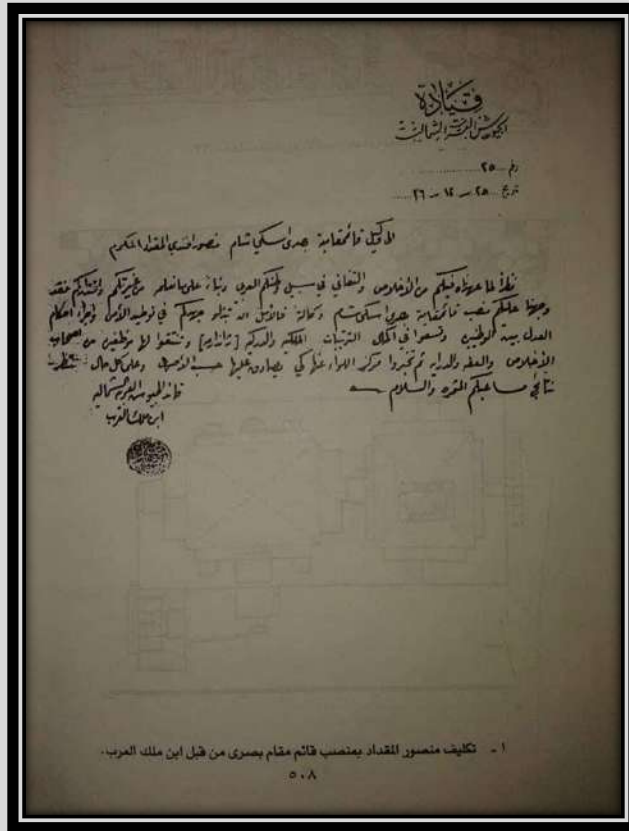 قيادة
الجيوش العربية الشمالية
رقم ٢٥
تاريخ ٢٥ - ١٢ - ٣٦
قائمقامية بصرى اسكي شام منصور افندي المقداد المكرم
نظراً لما عهدناه فيكم من الأخلاص والتفاني في سبيل وطنكم العربي وبناءً على ما نعلم من غيرتكم فقد
وجهنا عليكم منصب قائمقامية بصرى اسكي شام وكالة فنأمل ان تبذلوا جهدكم في توطيد الأمن واجراء احكام
العدل بين الوطنيين وتسعوا في اكمال الترتيبات الملكية [ ] وتنتقوا لها موظفين من اصحاب
الأخلاص والعفة والدراية ثم تخبروا مركز اللواء عنها كي يصادق عليها حسب الأصول وعلى كل حال ننتظر
نتائج مساعيكم والسلام
قائد الجيوش العربية الشمالية
ابن ملك العرب
١ - تكليف منصور المقداد بمنصب قائم مقام بصرى من قبل ابن ملك العرب.
٥٠٨